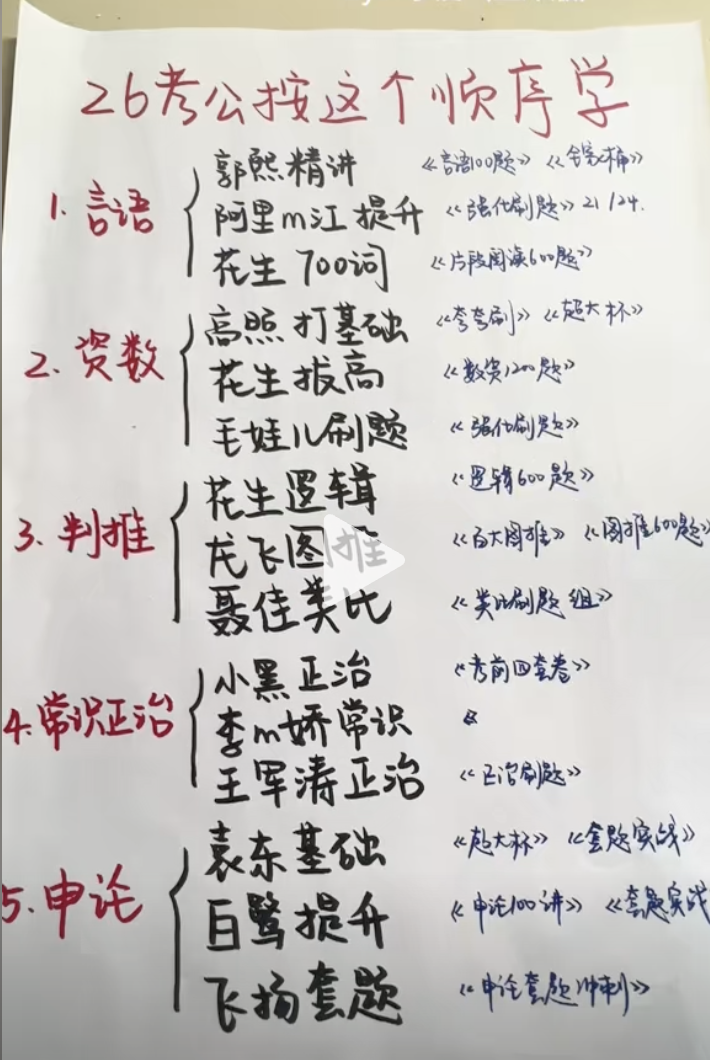 26考公按这个顺序学
1. 言语
郭熙精讲 《言语100题》 《全家桶》
阿里m江提升 《强化刷题》21/24.
花生700词 《片段阅读600题》
2. 资数
高照打基础 《夸夸刷》 《超大杯》
花生拔高 《数资1200题》
毛娃儿刷题 《强化刷题》
3. 判推
花生逻辑 《逻辑600题》
龙飞图推 《百大图推》 《图推600题》
聂佳类比 《类比刷题组》
4. 常识正治
小黑正治 《考前四套卷》
李m娇常识 《
王军涛正治 《正治刷题》
5. 申论
袁东基础 《超大杯》 《套题实战》
白鹭提升 《申论100讲》 《套题实战
飞扬套题 《申论套题冲刺》